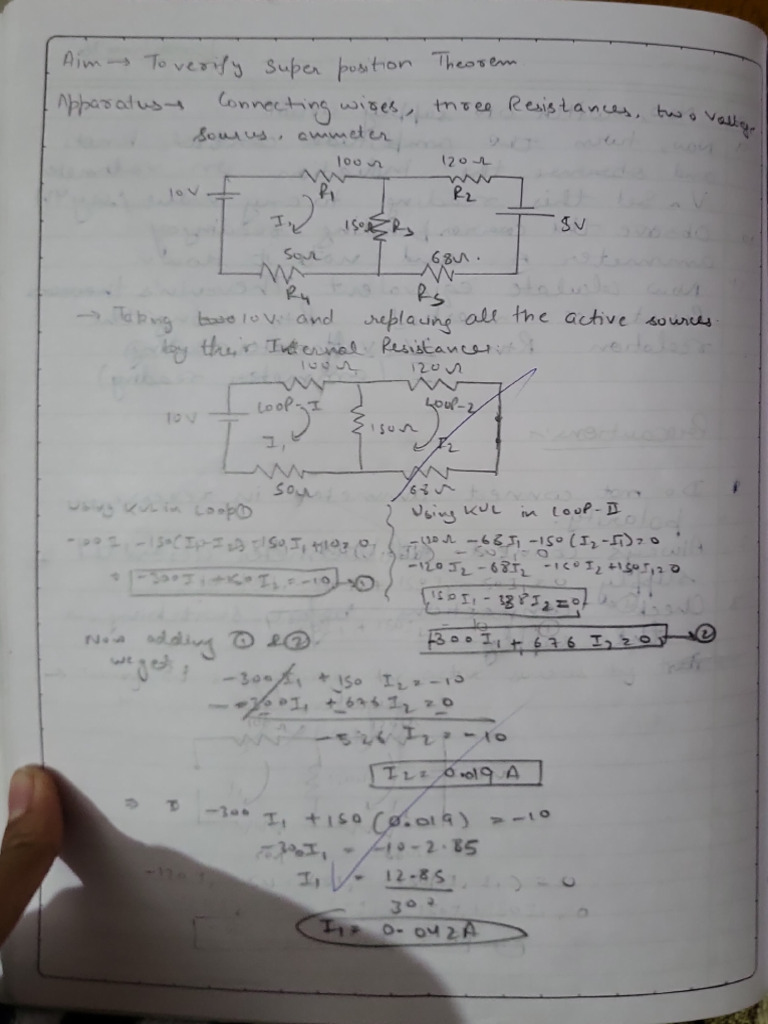 Aim → To verify Super position Theorem
Apparatus → Connecting wires, three Resistances, two Voltage
Sources, ammeter
100Ω 120Ω
10V R1 R2
I1 150Ω R3 5V
50Ω 68Ω
R4 R5
→ Taking 10V and replacing all the active sources
by their Internal Resistances.
100Ω 120Ω
10V LOOP-I LOOP-2
I1 150Ω I2
50Ω 68Ω
Using KVL in Loop ①
-100I1 -150(I1-I2) -50I1 +10=0
-300I1 +150I2 = -10 → ①
Using KVL in LOOP-II
-120Ω -68I2 -150(I2-I1)=0
-120I2 -68I2 -150I2 +150I1=0
150I1 - 338I2=0
-300I1 + 676I2=0 → ②
Now adding ① & ②
we get;
-300I1 + 150 I2 = -10
-300I1 + 676 I2 = 0
-526 I2 = -10
I2 = 0.019 A
⇒ -300 I1 + 150 (0.019) = -10
-300I1 = -10-2.85
I1 = 12.85
I1 = 0.042A